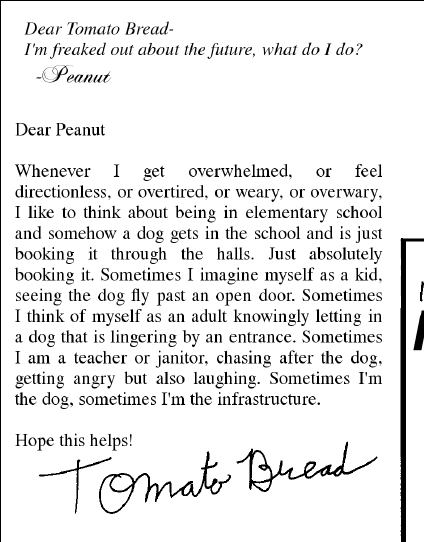 Dear Tomato Bread-
I'm freaked out about the future, what do I do?
-Peanut
Dear Peanut
Whenever I get overwhelmed, or feel
directionless, or overtired, or weary, or overwary,
I like to think about being in elementary school
and somehow a dog gets in the school and is just
booking it through the halls. Just absolutely
booking it. Sometimes I imagine myself as a kid,
seeing the dog fly past an open door. Sometimes
I think of myself as an adult knowingly letting in
a dog that is lingering by an entrance. Sometimes
I am a teacher or janitor, chasing after the dog,
getting angry but also laughing. Sometimes I'm
the dog, sometimes I'm the infrastructure.
Hope this helps!
Tomato Bread